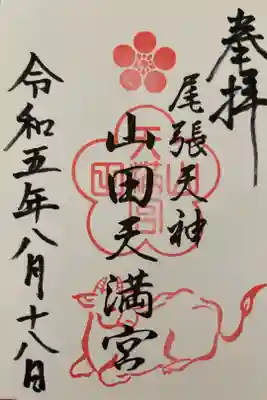 奉拝
尾張天神
山田天満宮
令和五年八月十八日